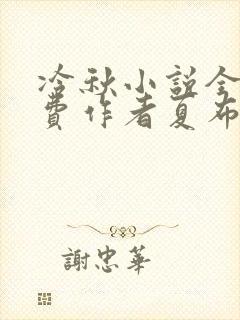 冷秋小説全
費作者夏布
謝忠華